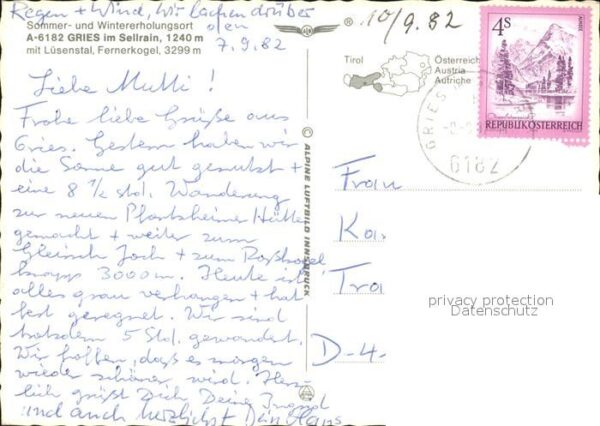 Regen + Wind, Wir lachen drüber
Sommer- und Wintererholungsort
A-6182 GRIES im Sellrain, 1240 m
mit Lüsenstal, Fernerkogel, 3299 m
den
7.9.82
10/9.82
Tirol
Österreich
Austria
Autriche
4S
AlmseE
REPUBLIK ÖSTERREICH
GRIES
6182
Liebe Mutti!
Frohe liebe Grüße aus
Gries. Gestern haben wir
die Sonne gut genutzt +
eine 8 ½ Std. Wanderung
zur neuen Pforzheimer Hütte
gemacht + weiter zum
Gleirsch Joch + zum Roßkogel
knapp 3000 m. Heute ist
alles grau verhangen + hat
fest geregnet. Wir sind
trotzdem 5 Std. gewandert.
Wir hoffen, daß es morgen
wieder schöner wird. Herz-
lich grüßt Dich Deine Ingrid
und auch herzlichst Dein Hans
ALPINE LUFTBILD INNSBRUCK
Frau
Ka
Tra
D-4
privacy protection
Datenschutz